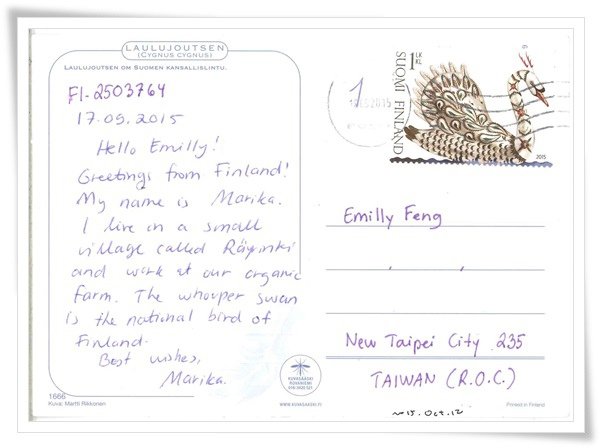 LAULUJOUTSEN
(CYGNUS CYGNUS)
LAULUJOUTSEN OM SUOMEN KANSALLISLINTU.
FI-2503764
17.09.2015
Hello Emilly!
Greetings from Finland!
My name is Marika.
I live in a small
village called Räyrinki
and work at our organic
farm. The whooper swan
is the national bird of
Finland.
Best wishes,
Marika.
1666
Kuva: Martti Rikkonen
KUVASAASKI
ROVANIEMI
WWW.KUVASAASKI.FI
1 LK
KL
SUOMI FINLAND
2015
1
Emilly Feng
New Taipei City 235
TAIWAN (R.O.C.)
2015. Oct. 12
Printed in Finland